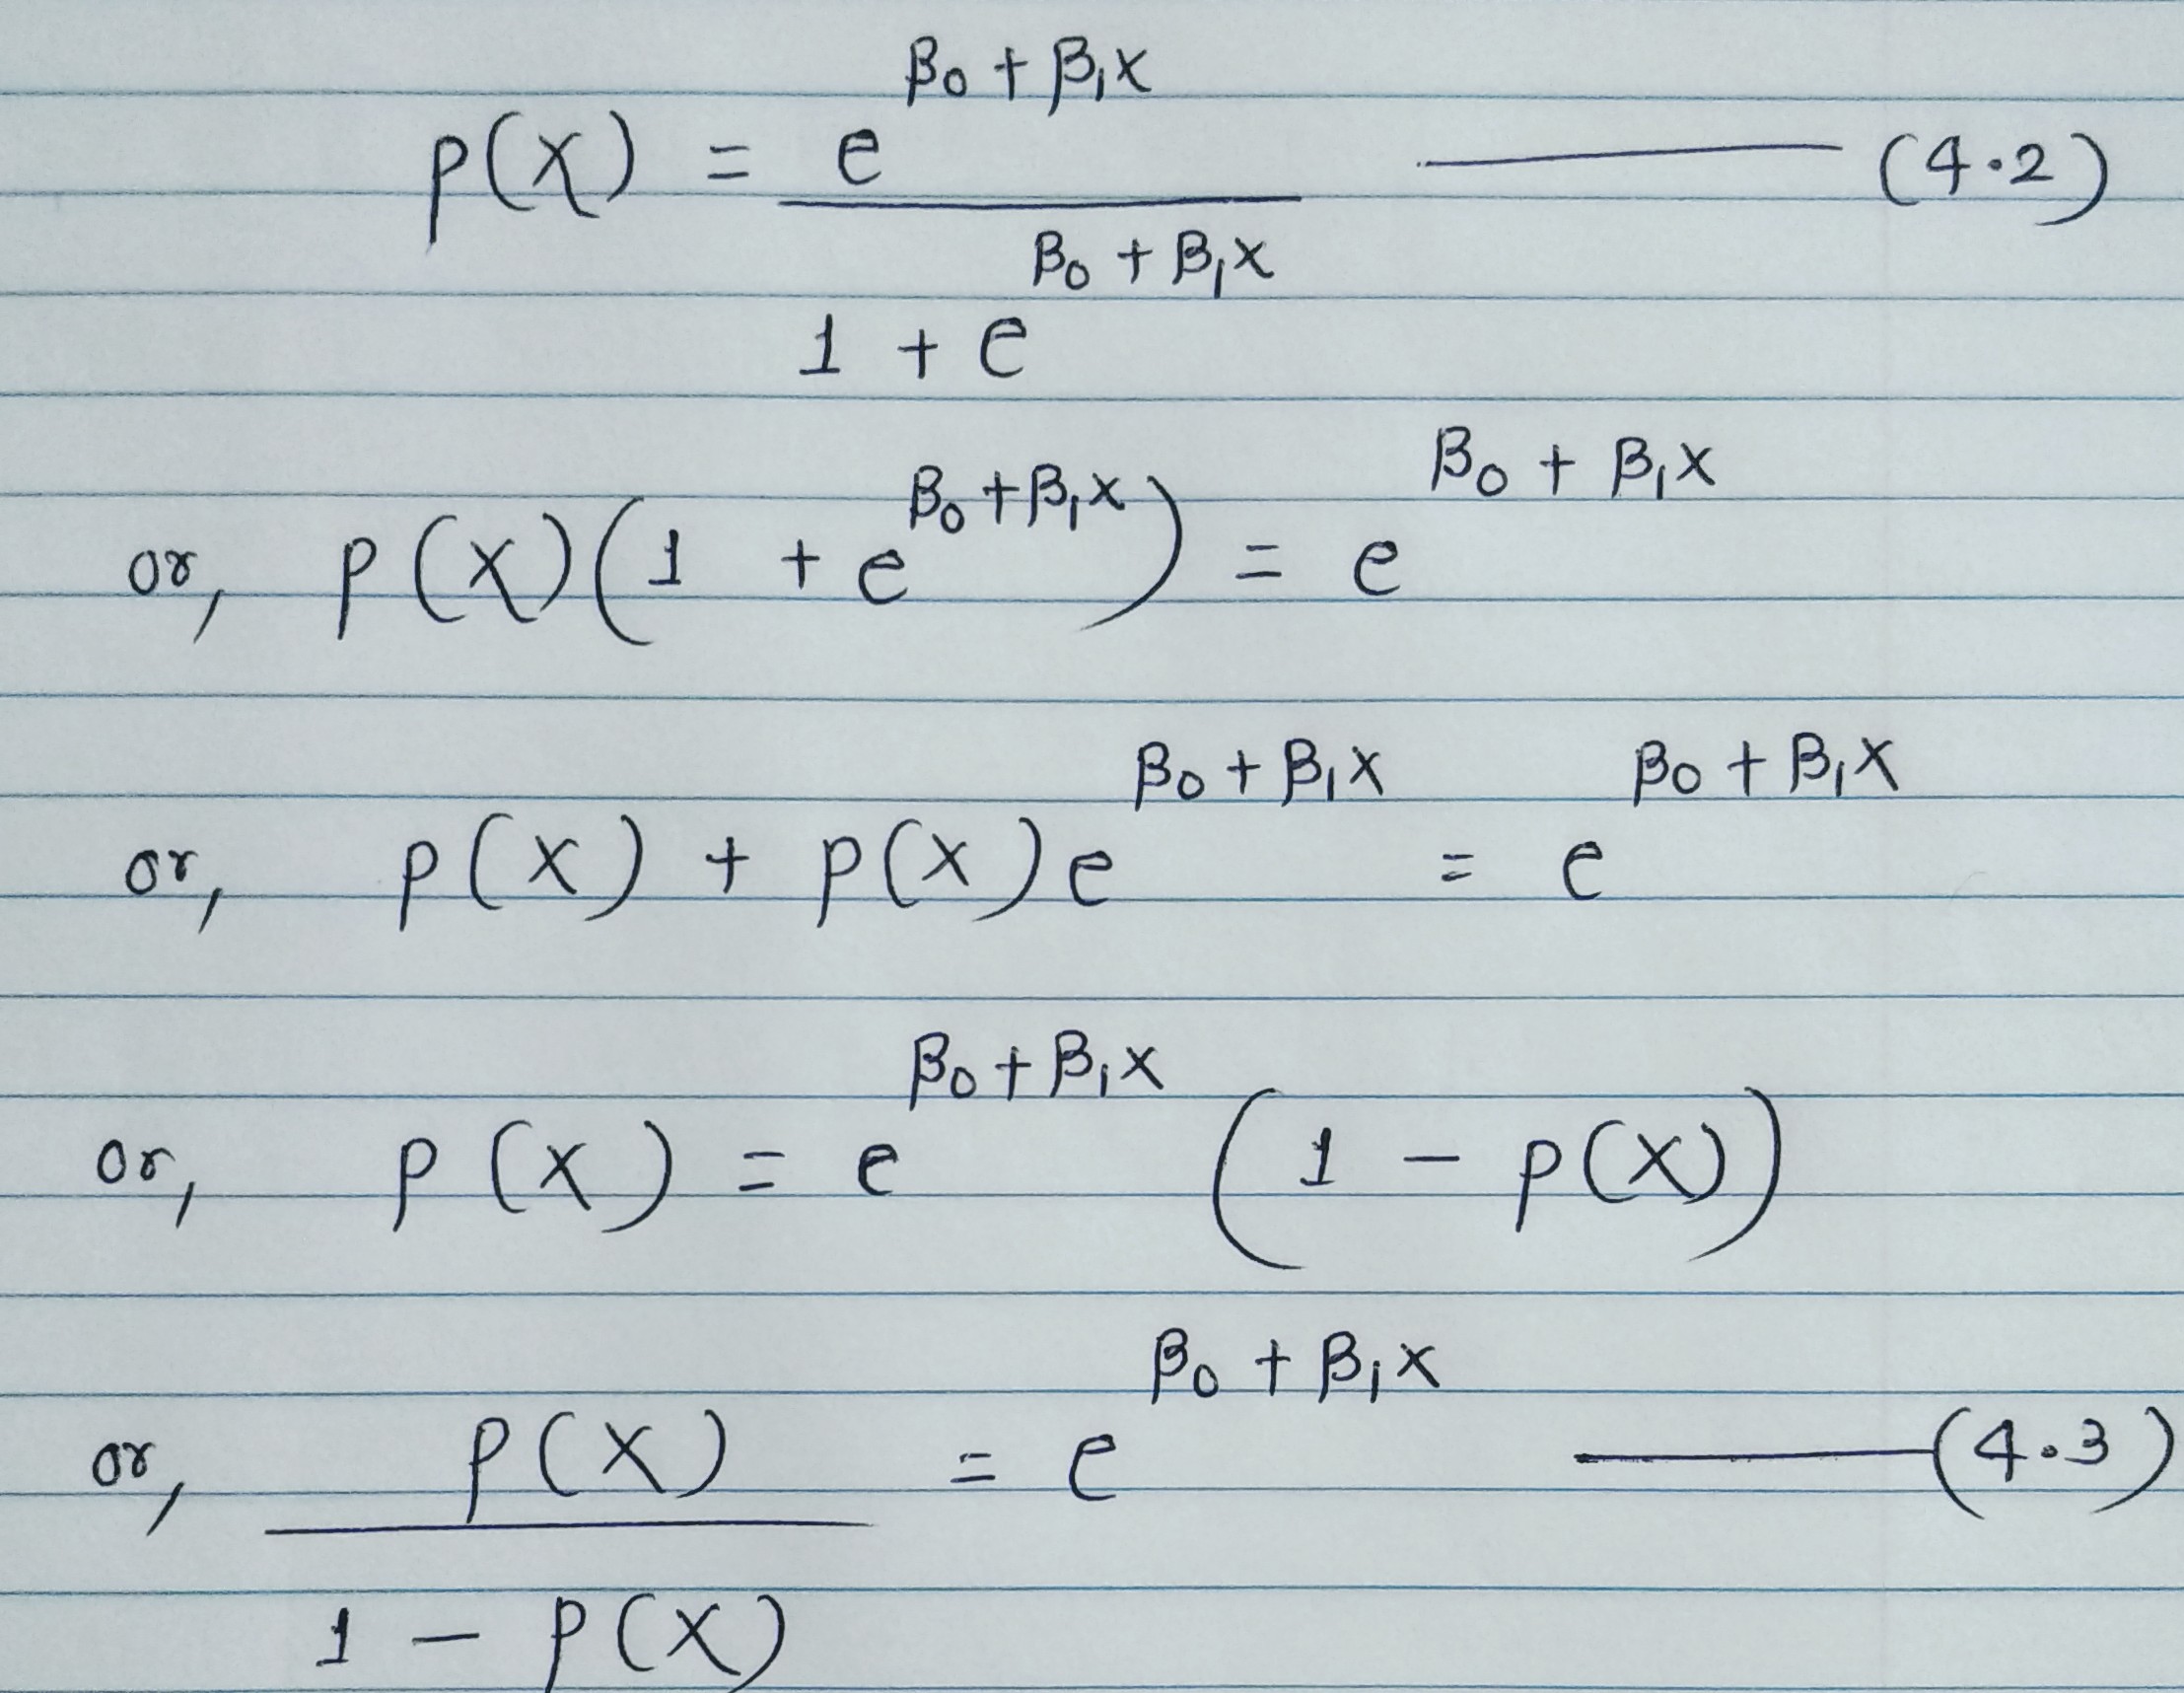 p(X) = e^{β₀ + β₁X} / (1 + e^{β₀ + β₁X}) ——— (4.2)
or, p(X)(1 + e^{β₀ + β₁X}) = e^{β₀ + β₁X}
or, p(X) + p(X)e^{β₀ + β₁X} = e^{β₀ + β₁X}
or, p(X) = e^{β₀ + β₁X} (1 - p(X))
or, p(X) / (1 - p(X)) = e^{β₀ + β₁X} ——— (4.3)